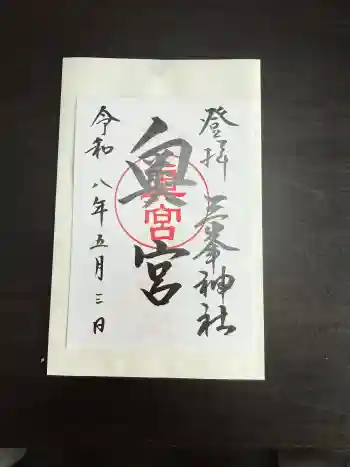 登拝 三峯神社
奥宮
奥宮
令和八年五月三日